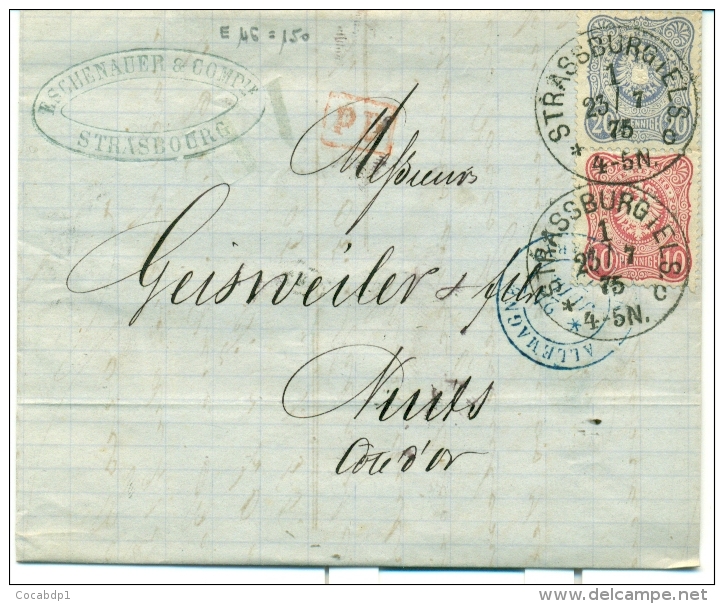 E 46 = 150
ESCHENAUER & COMPIE
STRASBOURG
PD
STRASSBURG i/ELS
1
23 7
75
4-5N.
C
20 PFENNIGE 20
STRASSBURG i/ELS
1
23 7
75
4-5N.
C
10 PFENNIGE 10
ALLEMAGNE
Messieurs
Geisweiler & fils
Nuits
Côte d'or
Cocabdp1
www.delcampe.net